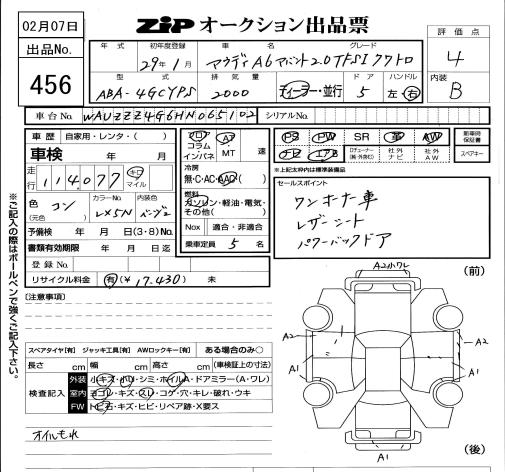 02月07日
ZiP オークション出品票
出品No.
456
評価点
4
内装
B
年式 初年度登録 車名 グレード
29年1月 アウディA6アバント2.0TFSIクワトロ
型式 排気量 ドア ハンドル
ABA-4GCYPS 2000 ディーラー・並行 5 左・右
車台No. WAUZZZ4G6HN065102 シリアルNo.
車歴 自家用・レンタ・( )
車検 年 月
走行 114,077 キロ マイル
色 コン (元色) カラーNo. LX5N 内装色 ベージュ
予備検 年 月 日(3・8)No.
書類有効期限 年 月 日迄
登録No.
リサイクル料金 有(¥17,430) 未
フロア コラム インパネ AT・MT 速
冷房 無・C・AC・AAC
燃料 ガソリン・軽油・電気・その他( )
Nox 適合・非適合
乗車定員 5 名
PS PW SR 革 AW
ナビ エアB 社外ナビ 社外AW
新車時保証書
スペアキー
※上記太枠内は標準装備
セールスポイント
ワンオーナー車
レザーシート
パワーバックドア
[注意事項]
スペアタイヤ[有] ジャッキ工具[有] AWロックキー[有] ある場合のみ○
長さ cm 幅 cm 高さ cm (車検証上の寸法)
検査記入
外装 小キズ・小凹・シミ・ホイルA・ドアミラー(A・ワレ)
室内 ヨゴレ・キズ・スレ・コゲ・穴・キレ・破れ・ウキ
FW トビ石・キズ・ヒビ・リペア跡・X要ス
オイルもれ
(前)
A2小ワレ
A2
A2
A1
A1
A1
(後)
※ご記入の際はボールペンで強くご記入下さい。